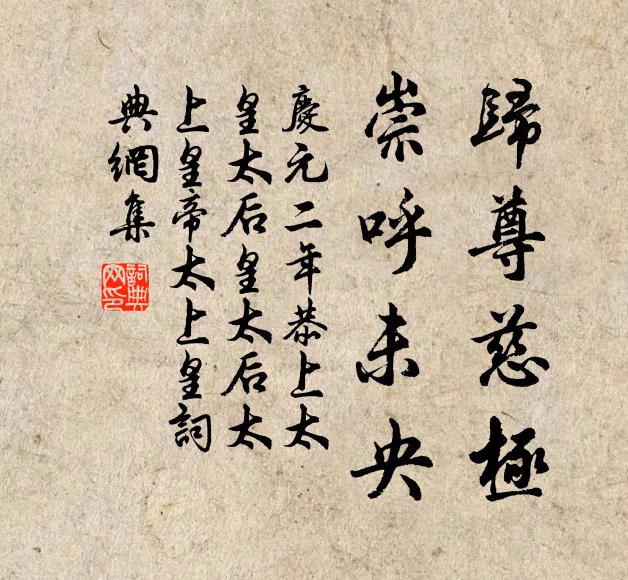 歸尊慈極
崇呼未央
慶元二年恭上太
皇太后皇太后太
上皇帝太上皇詞
典網集
詞典網印